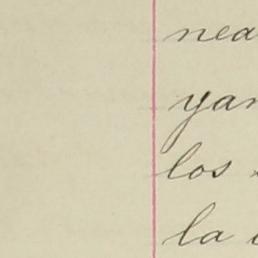 nea
yan
los
la